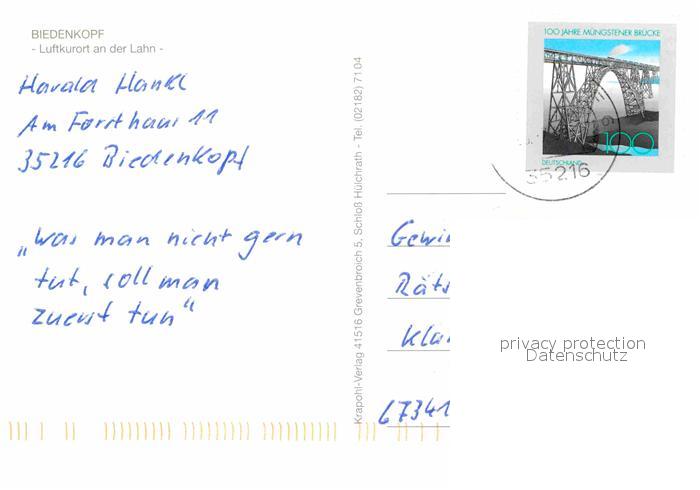 BIEDENKOPF
- Luftkurort an der Lahn -
Harald Hankl
Am Forsthaus 11
35216 Biedenkopf
„was man nicht gern
tut, soll man
zuerst tun“
Krapohl-Verlag 41516 Grevenbroich 5, Schloß Hülchrath - Tel. (02182) 71 04
100 JAHRE MÜNGSTENER BRÜCKE
100
DEUTSCHLAND
35216
Gewin
Räts
Kla
67341
privacy protection
Datenschutz